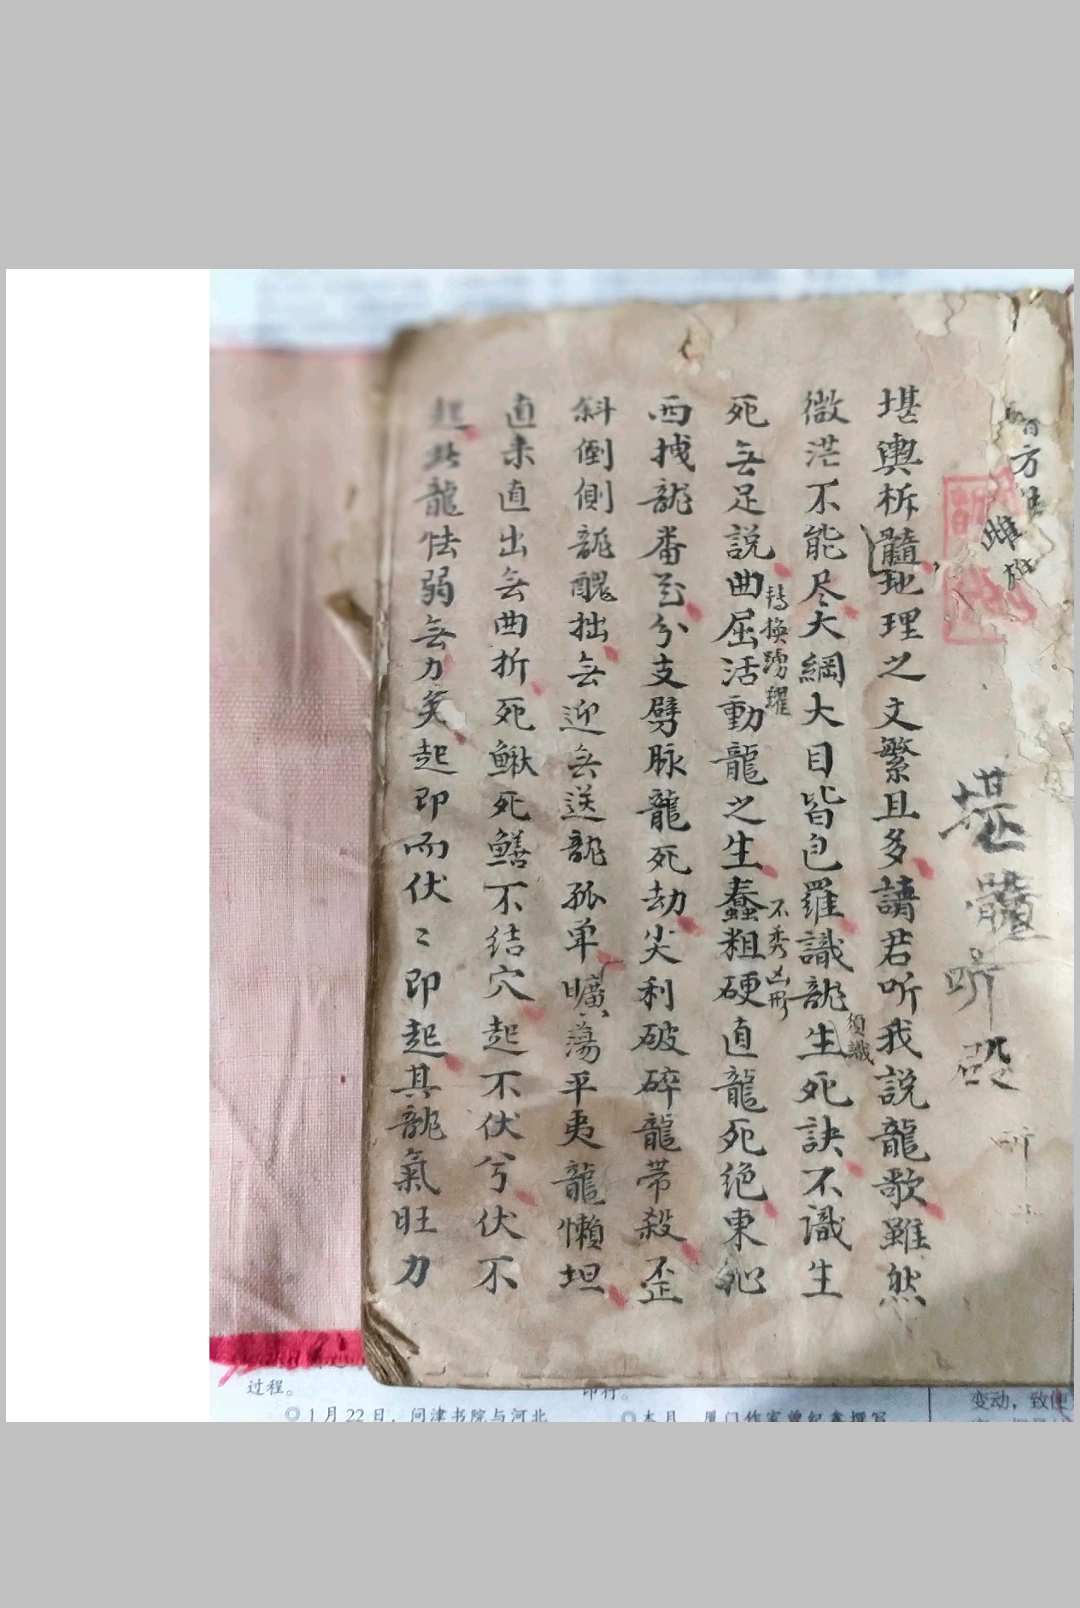 方
雌
堪髓听
堪輿柝髓地理之文繁且多請君听我説龍歌雖然
微茫不能尽大綱大目皆包羅識龍生死訣不識生
須識
死無足説曲屈活動龍之生蠢粗硬直龍死绝東
轉換踴躍
不秀凶形
西拽龍番花分支劈脉龍死劫尖利破碎龍帯殺歪
斜倒側龍醜拙無迎無送龍孤单曠蕩平夷龍懶坦
直来直出無曲折死鰍死鱔不结穴起不伏兮伏不
起此龍怯弱無力矣起即而伏〻即起其龍氣旺力
过程。
◎1月22日，问津书院与河北
印行。
◎本月，厦门作家曾纪鑫撰写
变动，致使